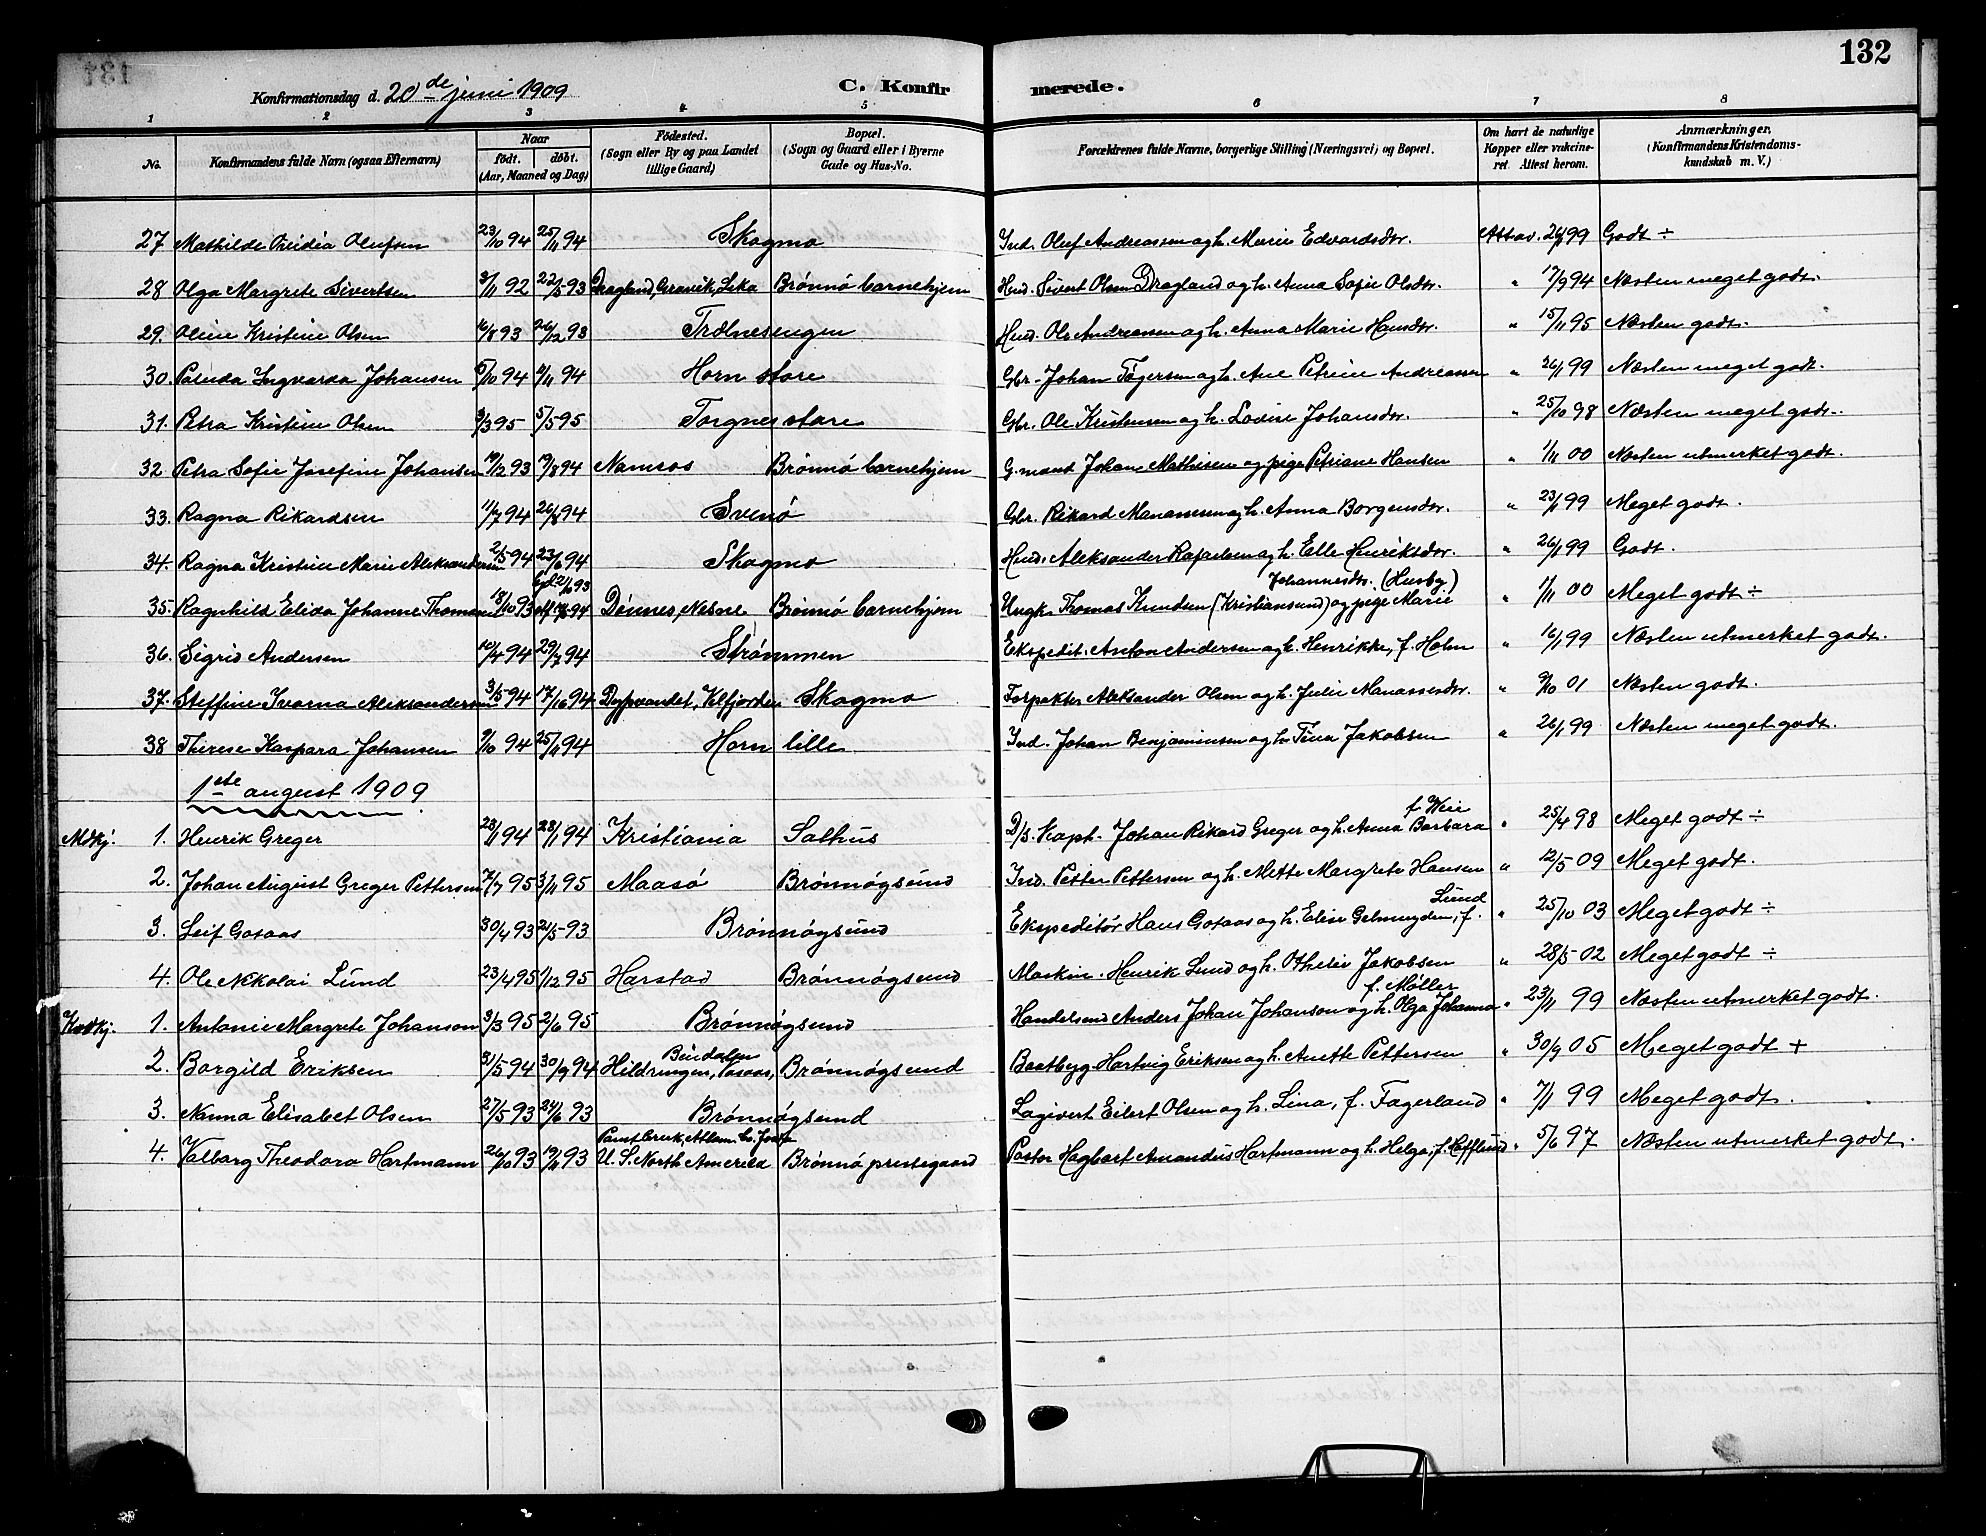 132
Konfirmationsdag d. 20de juni 1909 C. Konfirmerede.
1 2 3 4 5 6 7 8
No. Konfirmandens fulde Navn (ogsaa Efternavn) Naar født. døbt. (Aar, Maaned og Dag) Fødested. (Sogn eller By og paa Landet tillige Gaard) Bopæl. (Sogn og Gaard eller i Byerne Gade og Hus-No. Forældrenes fulde Navne, borgerlige Stilling (Næringsvei) og Bopæl. Om havt de naturlige Kopper eller vakcineret. Attest herom. Anmærkninger, (Konfirmandens Kristendomskundskab m. V.)
27 Mathilde Olufsen 23/10 94 25/11 94 Skogmo Ind. Oluf Andreassen og h. Marie Edvardsdtr. 99 Godt ÷
28 Olga Margrete Sivertsen 3/11 92 22/5 93 Dragland, Gravik, Leka Brønnø barnehjem Hmd. Sivert Olsen Dragland og h. Anna Sofie Olsdtr. " 17/9 94 Næsten meget godt.
29. Oline Kristine Olsen 16/8 93 26/12 93 Trælnesengen Hmd. Ole Andreassen og h. Anna Marie Hansdtr. " 15/11 95 Næsten godt.
30. Paluda Ingvarda Johansen 5/10 94 11/11 94 Horn store Gbr. Johan Tøgersen og h. Ane Petrine Andreassen " 26/1 99 Næsten meget godt.
31. Petra Kristine Olsen 3/3 95 5/5 95 Torgnes store Gbr. Ole Kristensen og h. Lovise Johansdtr. " 25/10 98 Næsten meget godt.
32 Petra Sofie Josefine Johansen 19/12 93 19/8 94 Namsos Brønnø barnehjem G.mand Johan Mathisen og pige Petriane Hansen " 1/11 00 Næsten utmerket godt.
33. Ragna Rikardsen 11/7 94 26/8 94 Svenø Gbr. Rikard Manassesen og h. Anna Borgensdtr. " 23/1 99 Meget godt.
34. Ragna Kristine Marie Aleksandersen 2/5 94 23/6 94 Skogmo Hmd. Aleksander Rafaelsen og h. Elle Henriksdtr. " 26/1 99 Godt.
35. Ragnhild Elida Johanne Thomasen 18/10 93 94 Dønnes, Nesne Brønnø barnehjem Ungk. Thomas Knudsen (Kristiansund) og pige Marie Johannesdtr. (Husby) " 1/11 00 Meget godt ÷
36. Sigrid Andersen 10/4 94 29/7 94 Strømmen Ekspedit. Anton Andersen og h. Henrikke, f. Holm " 16/1 99 Næsten utmerket godt.
37. Steffine Ivarna Aleksandersen 3/5 94 17/10 94 Dypvandet, Velfjorden Skogmo Forpakter Aleksander Olsen og h. Julie Manassesdtr. " 9/10 01 Næsten godt.
38 Therese Kaspara Johansen 9/10 94 25/11 94 Horn lille Ind. Johan Benjaminsen og h. Tina Jakobsen " 26/1 99 Næsten meget godt.
1ste august 1909
Mdkj. 1. Henrik Greger 94 94 Kristiania Salhus D/s. Kapt. Johan Rikard Greger og h. Anna Barbara f. Weie " 25/4 98 Meget godt ÷
2. Johan August Greger Pettersen 7/7 95 3/11 95 Maasø Brønnøysund Ind. Petter Pettersen og h. Mette Margrete Hansen " 12/5 09 Meget godt.
3. Leif Gotaas 30/1 93 21/5 93 Brønnøysund Ekspeditør Hans Gotaas og h. Elise Gelmuyden, f. Lund " 25/10 03 Meget godt ÷
4. Ole Nikolai Lund 23/4 95 1/12 95 Harstad Brønnøysund Maskin. Henrik Lund og h. Othelie Jakobsen " 28/5 02 Meget godt ÷
Kvdkj. 1. Antonie Margrete Johanson 3/3 95 2/6 95 Brønnøysund Handelsmd Anders Johan Johanson og h. Olga Johanna f. Møller " 23/11 99 Næsten utmerket godt.
2. Borgild Eriksen 31/5 94 30/9 94 Hildringen, Vasaas, Bindalen Brønnøysund Baatbyg. Hartvig Eriksen og h. Anette Pettersen " 30/9 05 Meget godt +
3. Nanna Elisabet Olsen 27/5 93 24/6 93 Brønnøysund Lagivert Eilert Olsen og h. Lina, f. Fagerland " 7/1 99 Meget godt.
4. Valborg Theodora Hartmann 26/10 93 19/11 93 U. S. North Amerika Brønnø prestegaard Pastor Hagbart Amandus Hartmann og h. Helga, f. Hofflund " 5/6 97 Næsten utmerket godt.